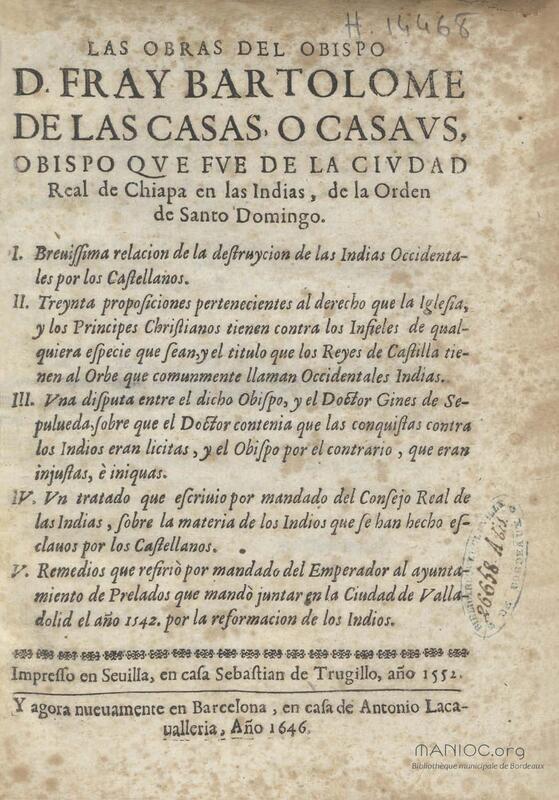 H. 14468
LAS OBRAS DEL OBISPO
D. FRAY BARTOLOME
DE LAS CASAS, O CASAVS,
OBISPO QVE FVE DE LA CIVDAD
Real de Chiapa en las Indias, de la Orden
de Santo Domingo.
I. Breuißima relacion de la destruycion de las Indias Occidenta-
les por los Castellanos.
II. Treynta proposiciones pertenecientes al derecho que la Iglesia,
y los Principes Christianos tienen contra los Infieles de qual-
quiera especie que sean, y el titulo que los Reyes de Castilla tie-
nen al Orbe que comunmente llaman Occidentales Indias.
III. Vna disputa entre el dicho Obispo, y el Doctor Gines de Se-
pulueda, sobre que el Doctor contenia que las conquistas contra
los Indios eran licitas, y el Obispo por el contrario, que eran
injustas, è iniquas.
IV. Vn tratado que escriuio por mandado del Consejo Real de
las Indias, sobre la materia de los Indios que se han hecho es-
clauos por los Castellanos.
V. Remedios que refiriò por mandado del Emperador al ayunta-
miento de Prelados que mandò juntar en la Ciudad de Valla-
dolid el año 1542. por la reformacion de los Indios.
Impresso en Seuilla, en casa Sebastian de Trugillo, año 1552.
Y agora nueuamente en Barcelona, en casa de Antonio Laca-
ualleria, Año 1646.
MANIOC.org
Bibliothèque municipale de Bordeaux